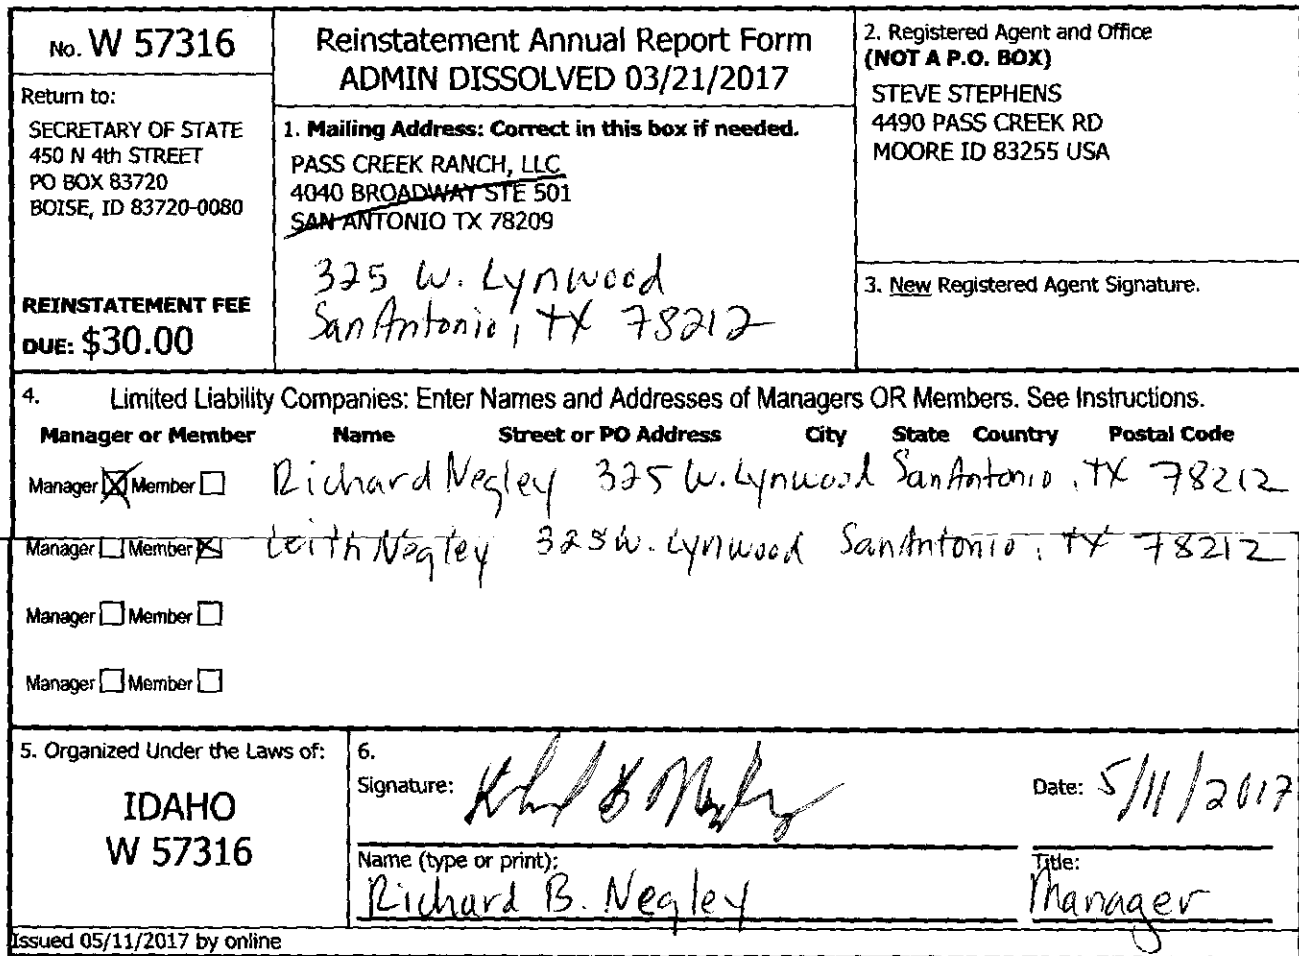 No. W 57316
Return to:
SECRETARY OF STATE
450 N 4th STREET
PO BOX 83720
BOISE, ID 83720-0080
REINSTATEMENT FEE
DUE: $30.00
Reinstatement Annual Report Form
ADMIN DISSOLVED 03/21/2017
1. Mailing Address: Correct in this box if needed.
PASS CREEK RANCH, LLC
4040 BROADWAY STE 501
SAN ANTONIO TX 78209
325 W. Lynwood
San Antonio, TX 78212
2. Registered Agent and Office
(NOT A P.O. BOX)
STEVE STEPHENS
4490 PASS CREEK RD
MOORE ID 83255 USA
3. New Registered Agent Signature.
4. Limited Liability Companies: Enter Names and Addresses of Managers OR Members. See Instructions.
Manager or Member Name Street or PO Address City State Country Postal Code
Manager Member Richard Negley 325 W. Lynwood San Antonio, TX 78212
Manager Member Leith Negley 325 W. Lynwood San Antonio, TX 78212
Manager Member
Manager Member
5. Organized Under the Laws of:
IDAHO
W 57316
6.
Signature: Date: 5/11/2017
Name (type or print): Title:
Richard B. Negley Manager
Issued 05/11/2017 by online